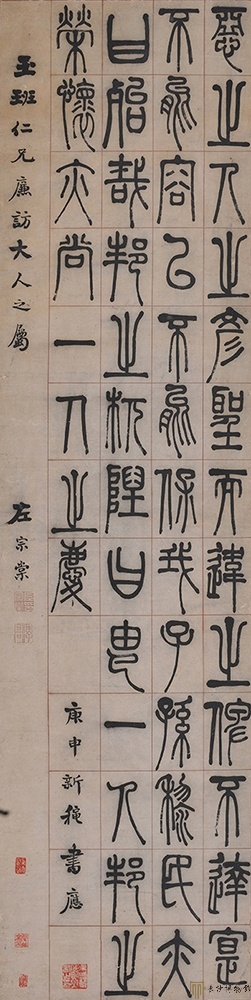 惡之人之彥聖而違之俾不達寔
不能容以不能保我子孫黎民亦
曰殆哉邦之杌隉曰由一人邦之
榮懷亦尚一人之慶
庚申新秋書應
玉班仁兄廉訪大人之屬
左宗棠